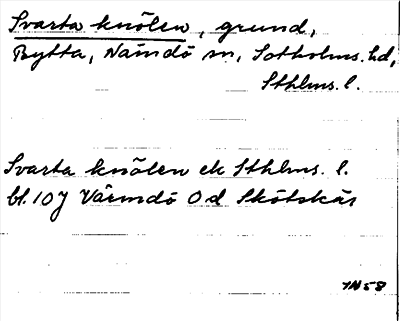 Svarta knölen, grund,
Bytta, Nämdö sn, Sotholms. hd,
Sthlms. l.
Svarta knölen ek Sthlms. l.
bl. 107 Värmdö Od Skötskär
IN 58